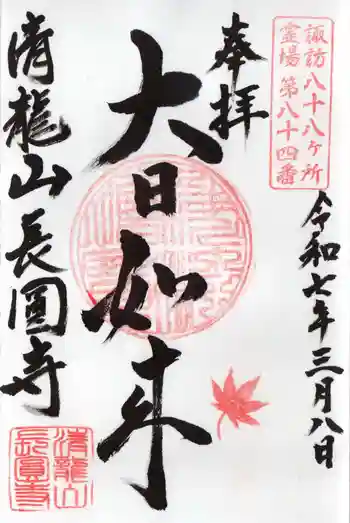 諏訪八十八ヶ所
霊場第八十四番
令和七年三月八日
奉拝
大日如来
清龍山長圓寺
清龍山
長圓寺